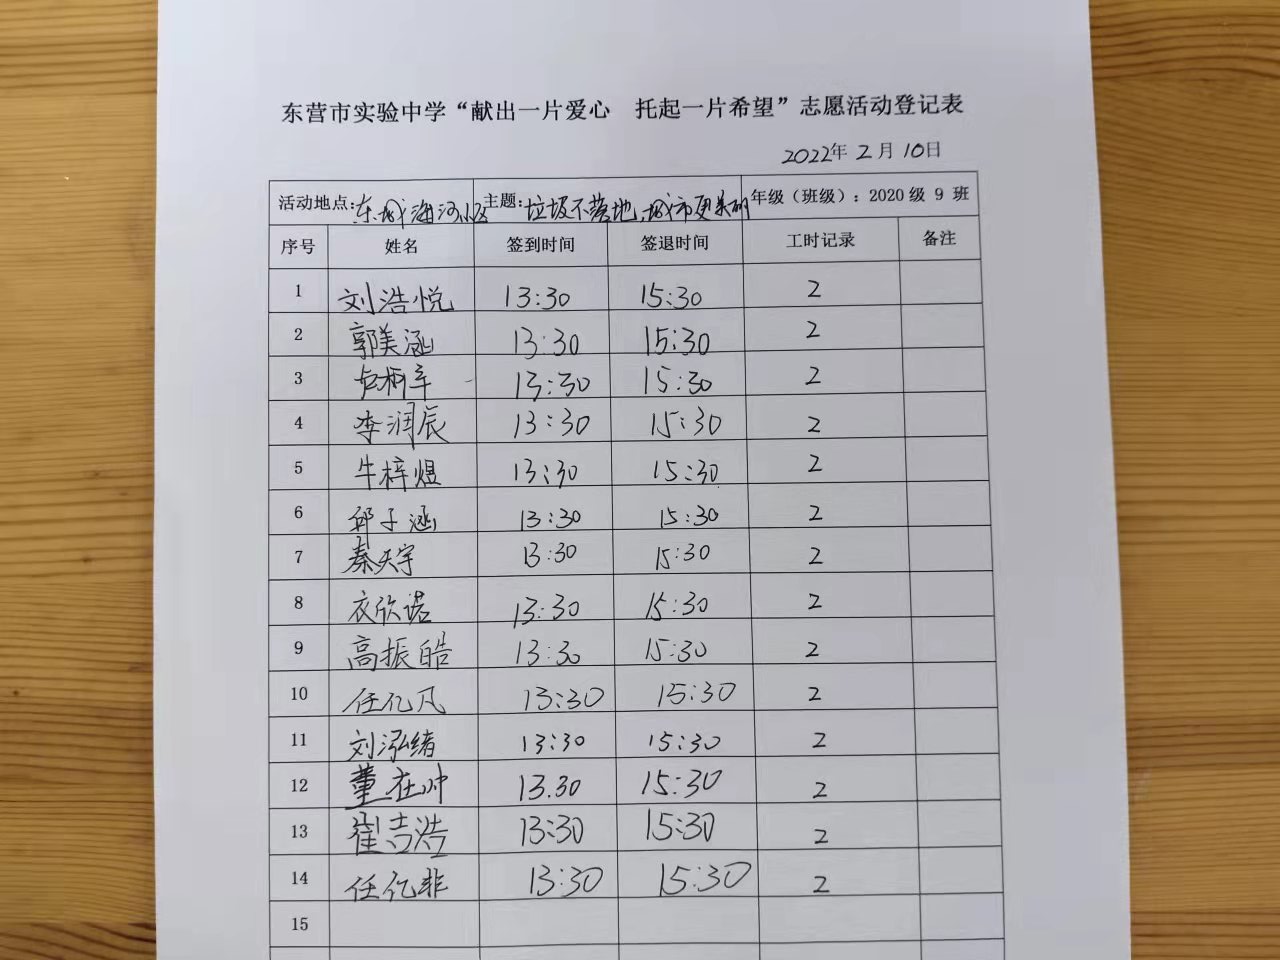 东营市实验中学“献出一片爱心 托起一片希望”志愿活动登记表
2022年 2 月 10日
活动地点:东城海河小区 主题:垃圾不落地,城市更美丽 年级（班级）: 2020级 9 班
序号 姓名 签到时间 签退时间 工时记录 备注
1 刘浩悦 13:30 15:30 2
2 郭美涵 13:30 15:30 2
3 卢柄辛 13:30 15:30 2
4 李润辰 13:30 15:30 2
5 牛梓煜 13:30 15:30 2
6 邱子涵 13:30 15:30 2
7 秦天宇 13:30 15:30 2
8 衣欣诺 13:30 15:30 2
9 高振皓 13:30 15:30 2
10 任亿凡 13:30 15:30 2
11 刘泓绪 13:30 15:30 2
12 董在冲 13.30 15:30 2
13 崔吉浩 13:30 15:30 2
14 任亿非 13:30 15:30 2
15